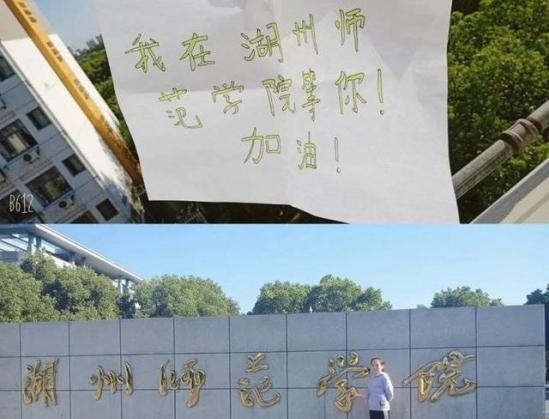 我在湖州师
范学院等你!
加油!
B612
湖州师范学院